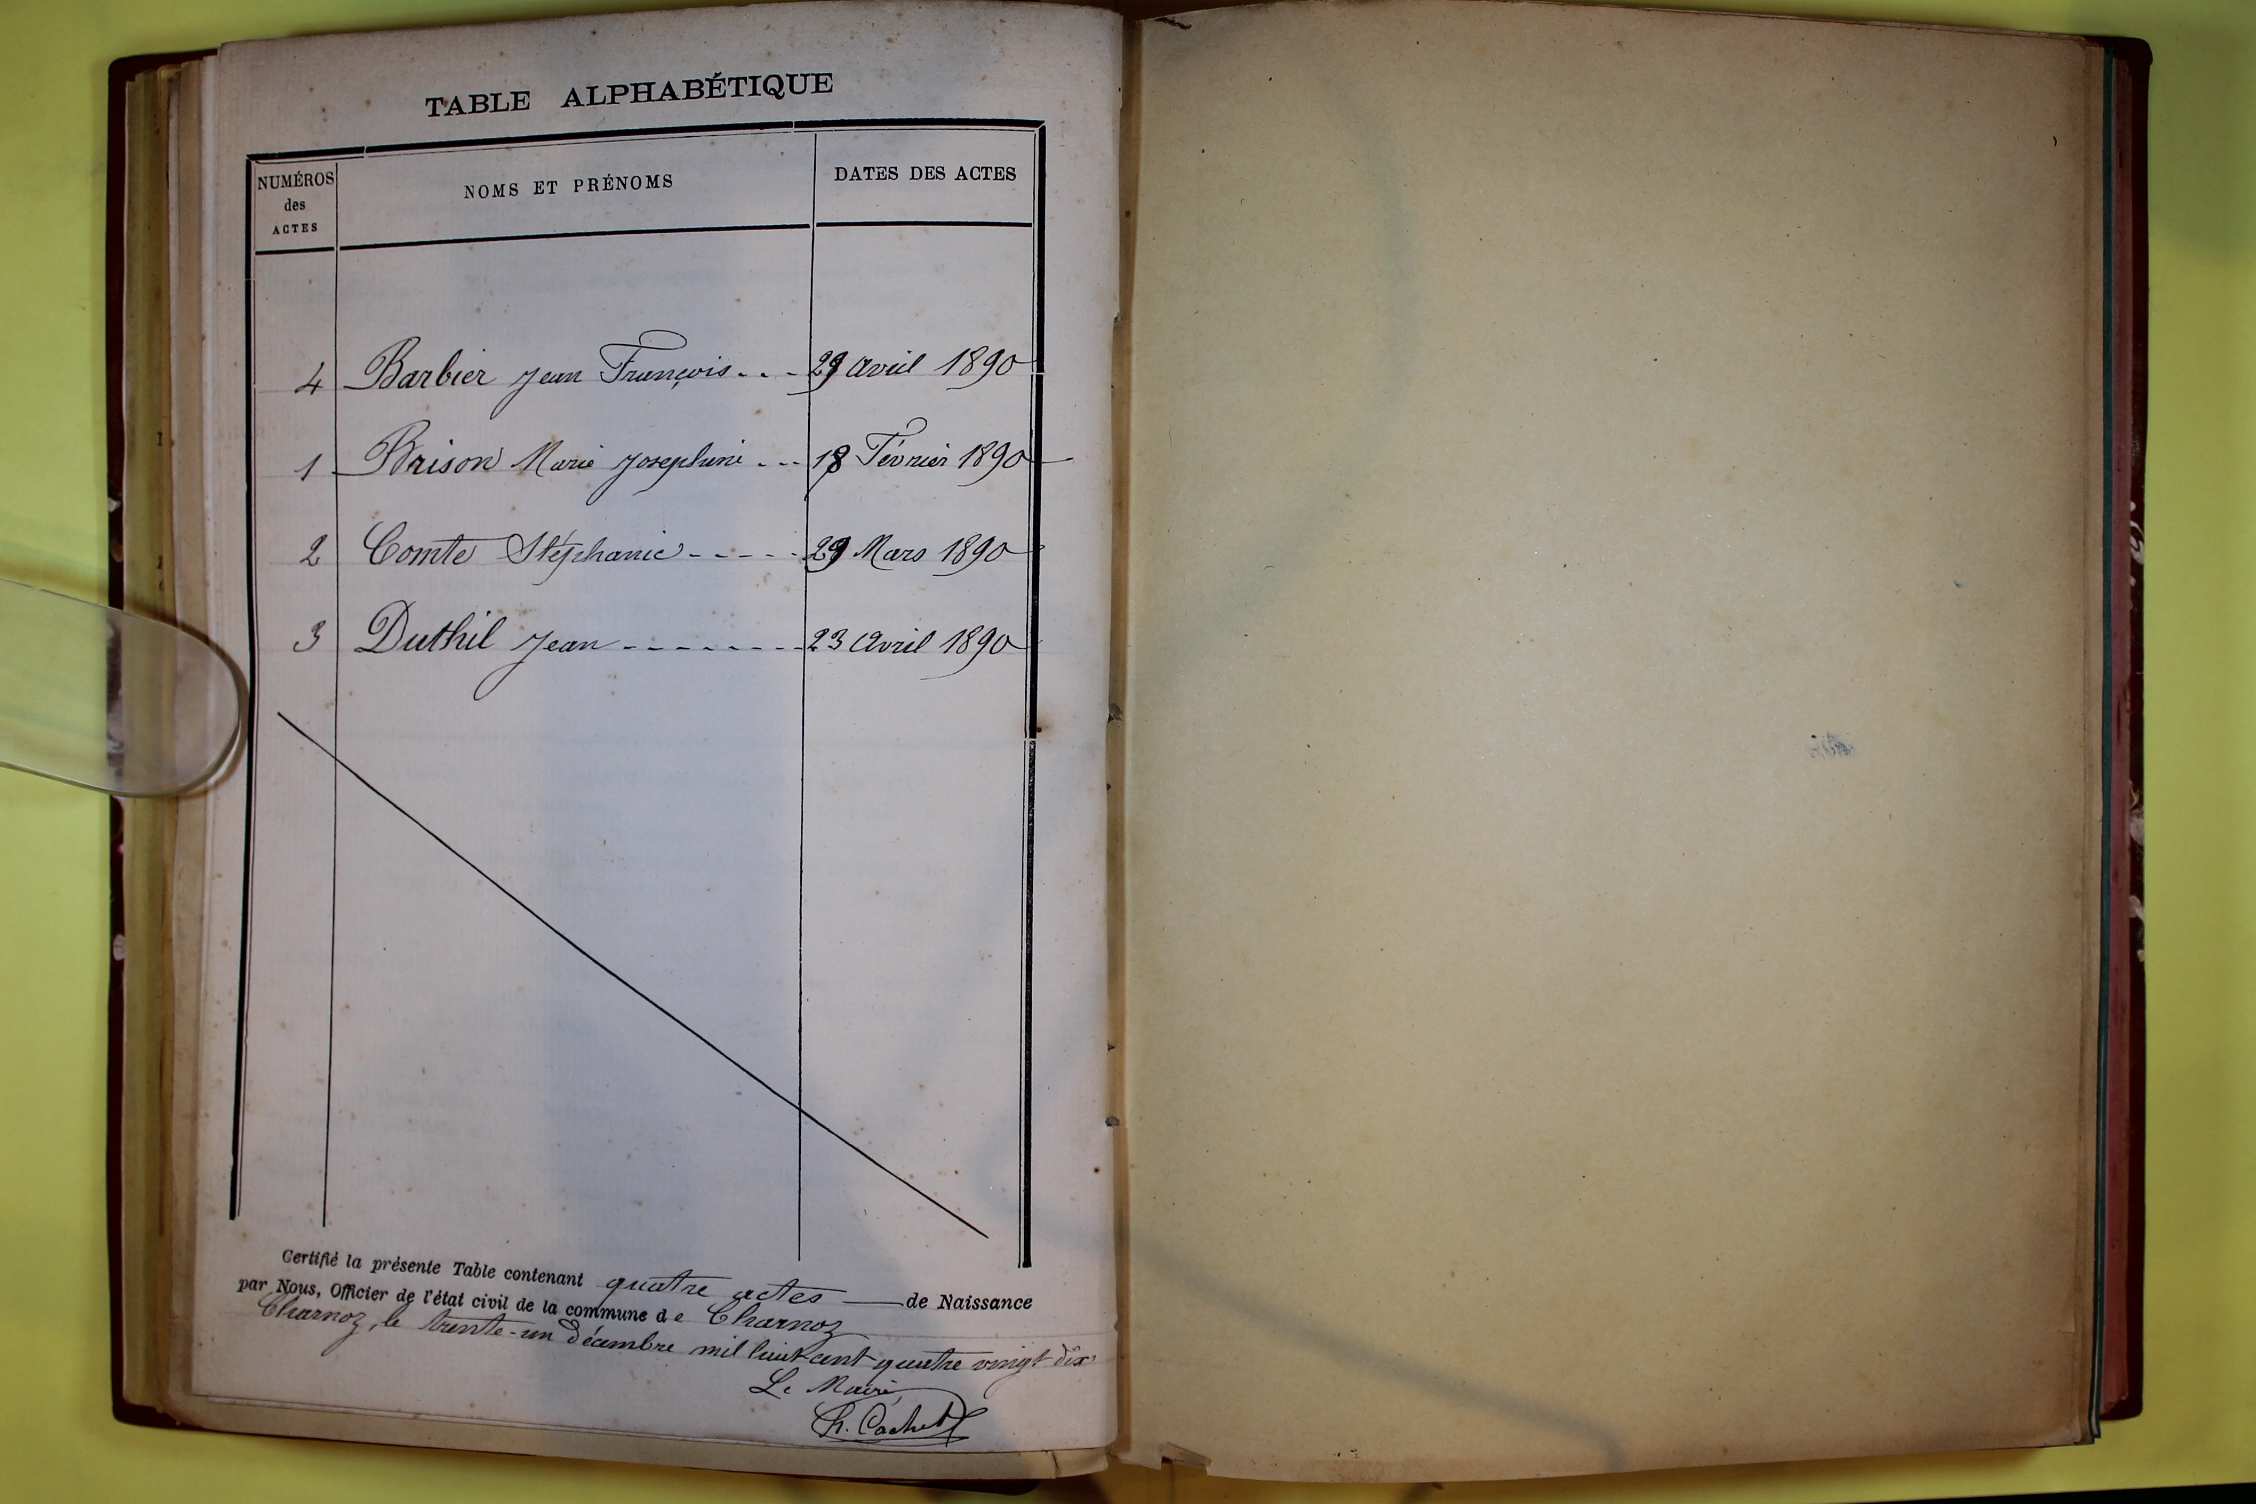 TABLE ALPHABÉTIQUE
NUMÉROS des ACTES
NOMS ET PRÉNOMS
DATES DES ACTES
4 Barbier Jean François - - - 29 avril 1890
1 Brison Marie Josephine - - - 18 Février 1890
2 Comte Stéphanie - - - - - 29 Mars 1890
3 Duthil Jean - - - - - - - - 23 Avril 1890
Certifié la présente Table contenant quatre actes — de Naissance
par Nous, Officier de l'état civil de la commune de Charnoz
Charnoz, le trente-un Décembre mil huit cent quatre vingt dix
Le Maire
Ch. Cachet